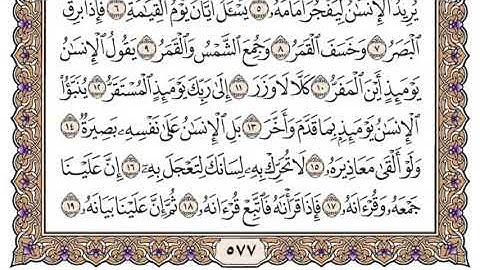 يُرِيدُ ٱلْإِنسَٰنُ لِيَفْجُرَ أَمَامَهُۥ ۝٥ يَسْـَٔلُ أَيَّانَ يَوْمُ ٱلْقِيَٰمَةِ ۝٦ فَإِذَا بَرِقَ
ٱلْبَصَرُ ۝٧ وَخَسَفَ ٱلْقَمَرُ ۝٨ وَجُمِعَ ٱلشَّمْسُ وَٱلْقَمَرُ ۝٩ يَقُولُ ٱلْإِنسَٰنُ
يَوْمَئِذٍ أَيْنَ ٱلْمَفَرُّ ۝١٠ كَلَّا لَا وَزَرَ ۝١١ إِلَىٰ رَبِّكَ يَوْمَئِذٍ ٱلْمُسْتَقَرُّ ۝١٢ يُنَبَّؤُا۟
ٱلْإِنسَٰنُ يَوْمَئِذٍۭ بِمَا قَدَّمَ وَأَخَّرَ ۝١٣ بَلِ ٱلْإِنسَٰنُ عَلَىٰ نَفْسِهِۦ بَصِيرَةٌ ۝١٤
وَلَوْ أَلْقَىٰ مَعَاذِيرَهُۥ ۝١٥ لَا تُحَرِّكْ بِهِۦ لِسَانَكَ لِتَعْجَلَ بِهِۦٓ ۝١٦ إِنَّ عَلَيْنَا
جَمْعَهُۥ وَقُرْءَانَهُۥ ۝١٧ فَإِذَا قَرَأْنَٰهُ فَٱتَّبِعْ قُرْءَانَهُۥ ۝١٨ ثُمَّ إِنَّ عَلَيْنَا بَيَانَهُۥ ۝١٩
٥٧٧